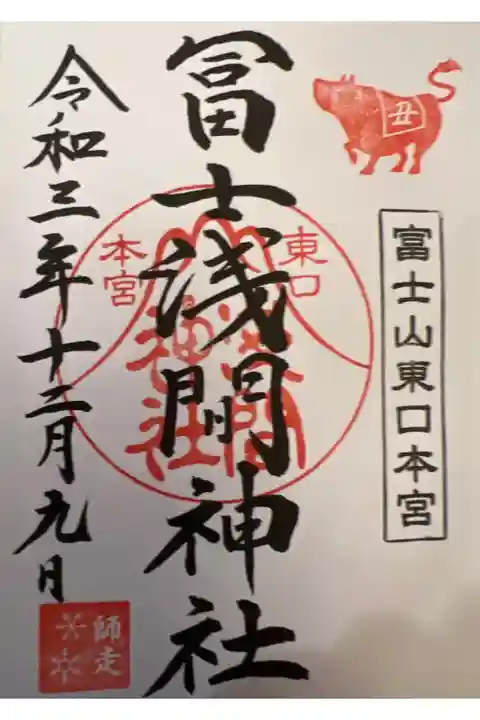 丑
富士山東口本宮
冨士浅間神社
東口
本宮
浅間
神社
令和三年十二月九日
師走